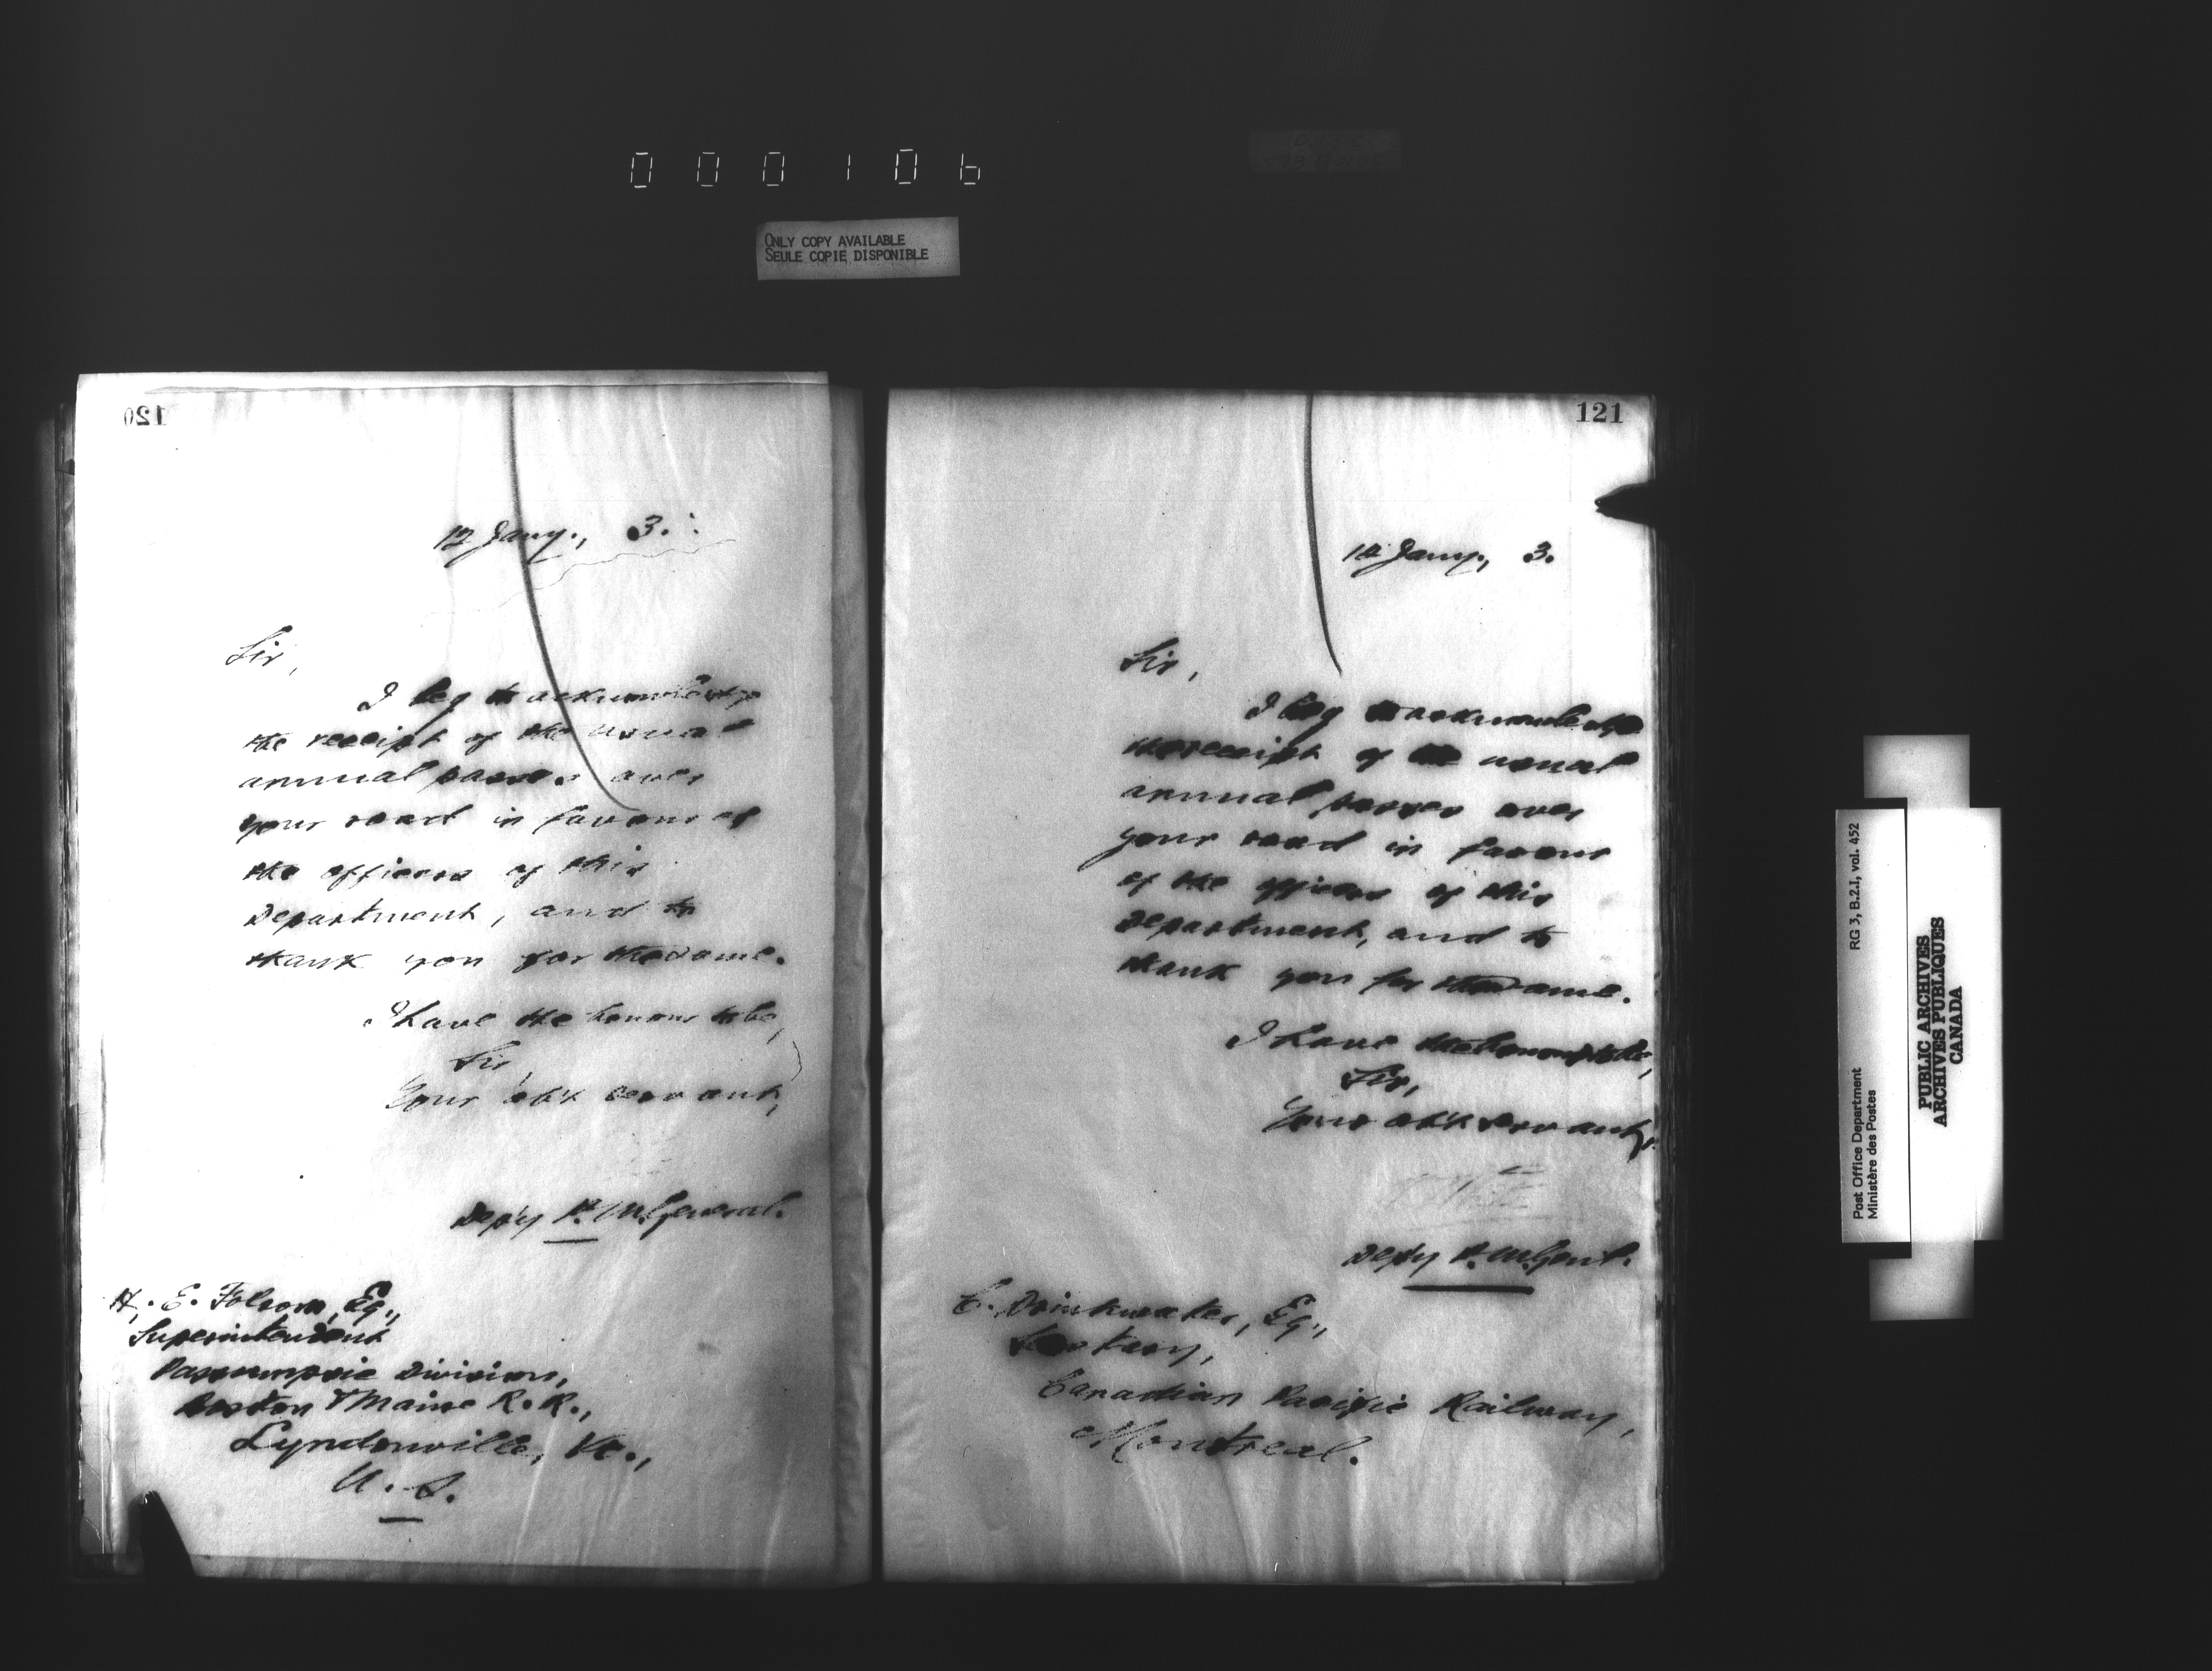 000106
ONLY COPY AVAILABLE
SEULE COPIE DISPONIBLE
120
12 Jany., 3.
Sir,
I beg to acknowledge
the receipt of the usual
annual passes over
your road in favour of
the officers of this
Department, and to
thank you for the same.
I have the honour to be,
Sir,
Your obt servant,
Dep'y P. M. General.
H. E. Folsom, Eq.,
Superintendent
Passumpsic Division,
Boston & Maine R. R.,
Lyndonville, Vt.,
U. S.
121
12 Jany., 3.
Sir,
I beg to acknowledge
the receipt of the usual
annual passes over
your road in favour
of the officers of this
Department, and to
thank you for the same.
I have the honour to be,
Sir,
Your obt servant,
Dep'y P. M. Genl.
C. Drinkwater, Eq.,
Canadian Pacific Railway,
Montreal.
RG 3, B.2.I, vol. 452
Post Office Department
Ministère des Postes
PUBLIC ARCHIVES
ARCHIVES PUBLIQUES
CANADA